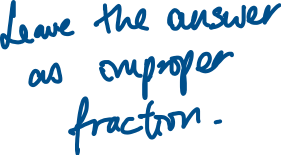 Leave the answer
as improper
fraction.